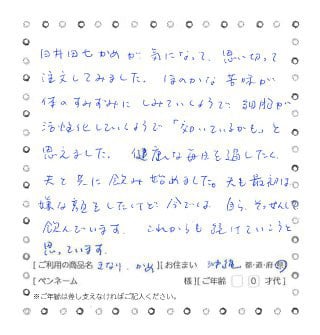 臼井田七かめが気になって、思い切って
注文してみました。ほのかな苦味が
体のすみずみにしみていくようで細胞が
活性化していくようで「効いているかも」と
思えました。健康な毎日を過したく
夫と共に飲み始めました。夫も最初は
嫌な顔をしたけど今では、自ら
飲んでいます。これからも続けていこうと
思っています。
[ご利用の商品名 きなり、かめ ][お住まい 沖縄 都・道・府・県]
[ペンネーム 様][ご年齢 0 才代]
※ご年齢は差し支えなければご記入ください。